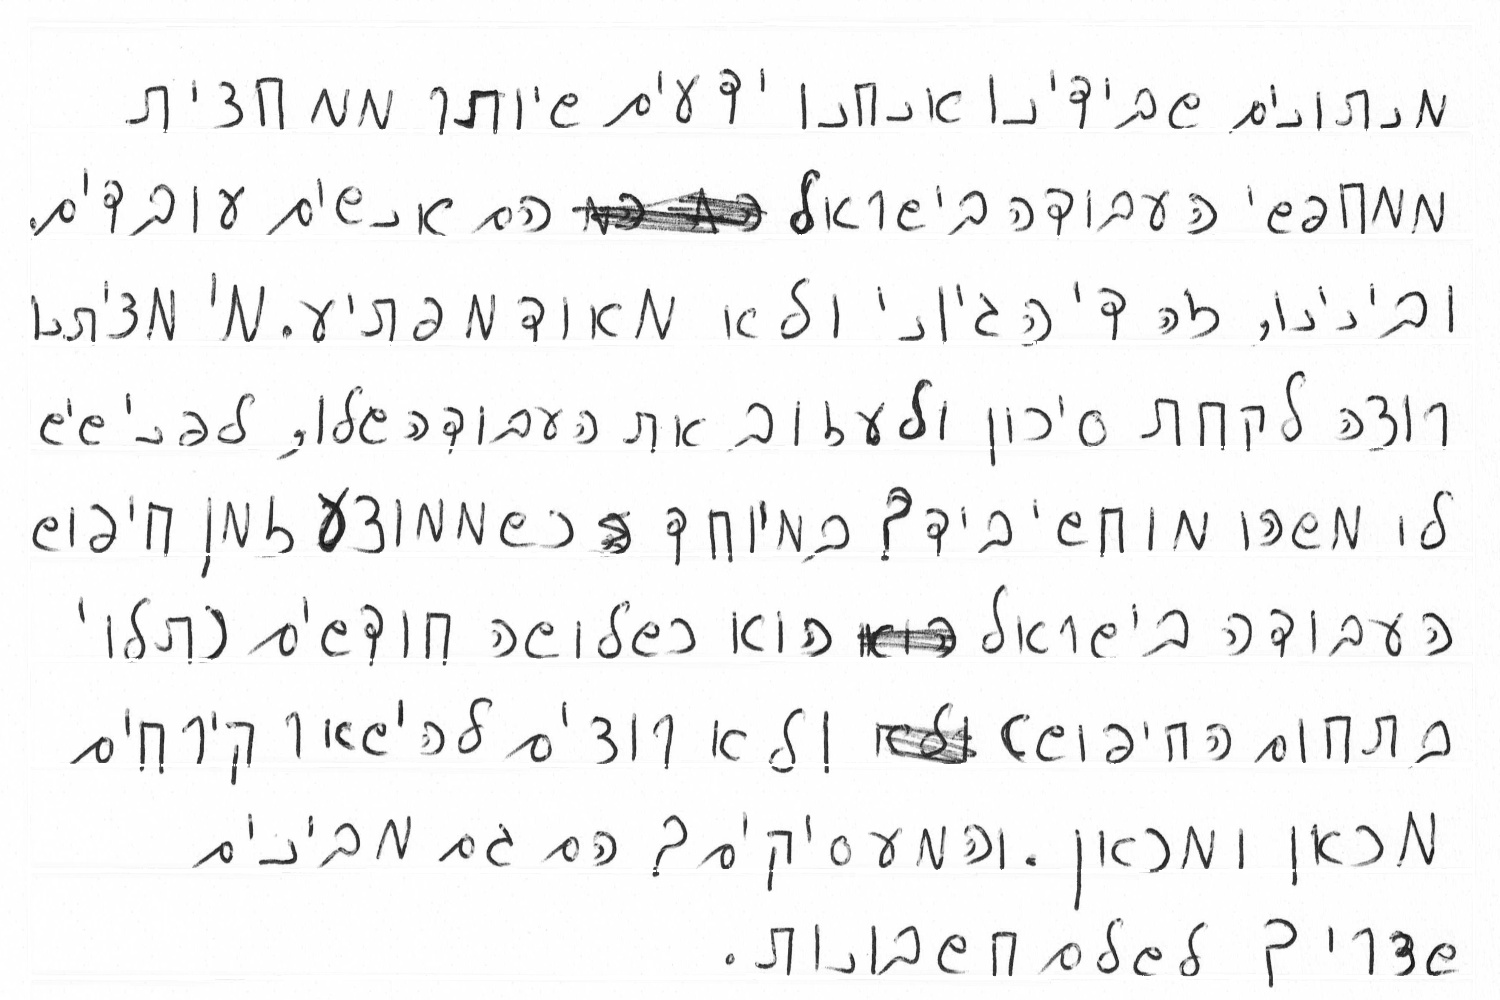 מנתונים שבידינו אנחנו ידעים שיותר ממחצית
ממחפשי העבודה בישראל הם אנשים עובדים.
ובינינו, זה די הגיוני ולא מאוד מפתיע. מי מציתנו
רוצה לקחת סיכון ולעזוב את העבודה שלו, לפני שיש
לו משהו מוחשי ביד? במיוחד כשממוצע זמן חיפוש
העבודה בישראל הוא כשלושה חודשים (תלוי
בתחום החיפוש) ולא רוצים להישאר קירחים
מכאן ומכאן. והמעסיקים? הם גם מבינים
שצריך לשלם חשבונות.